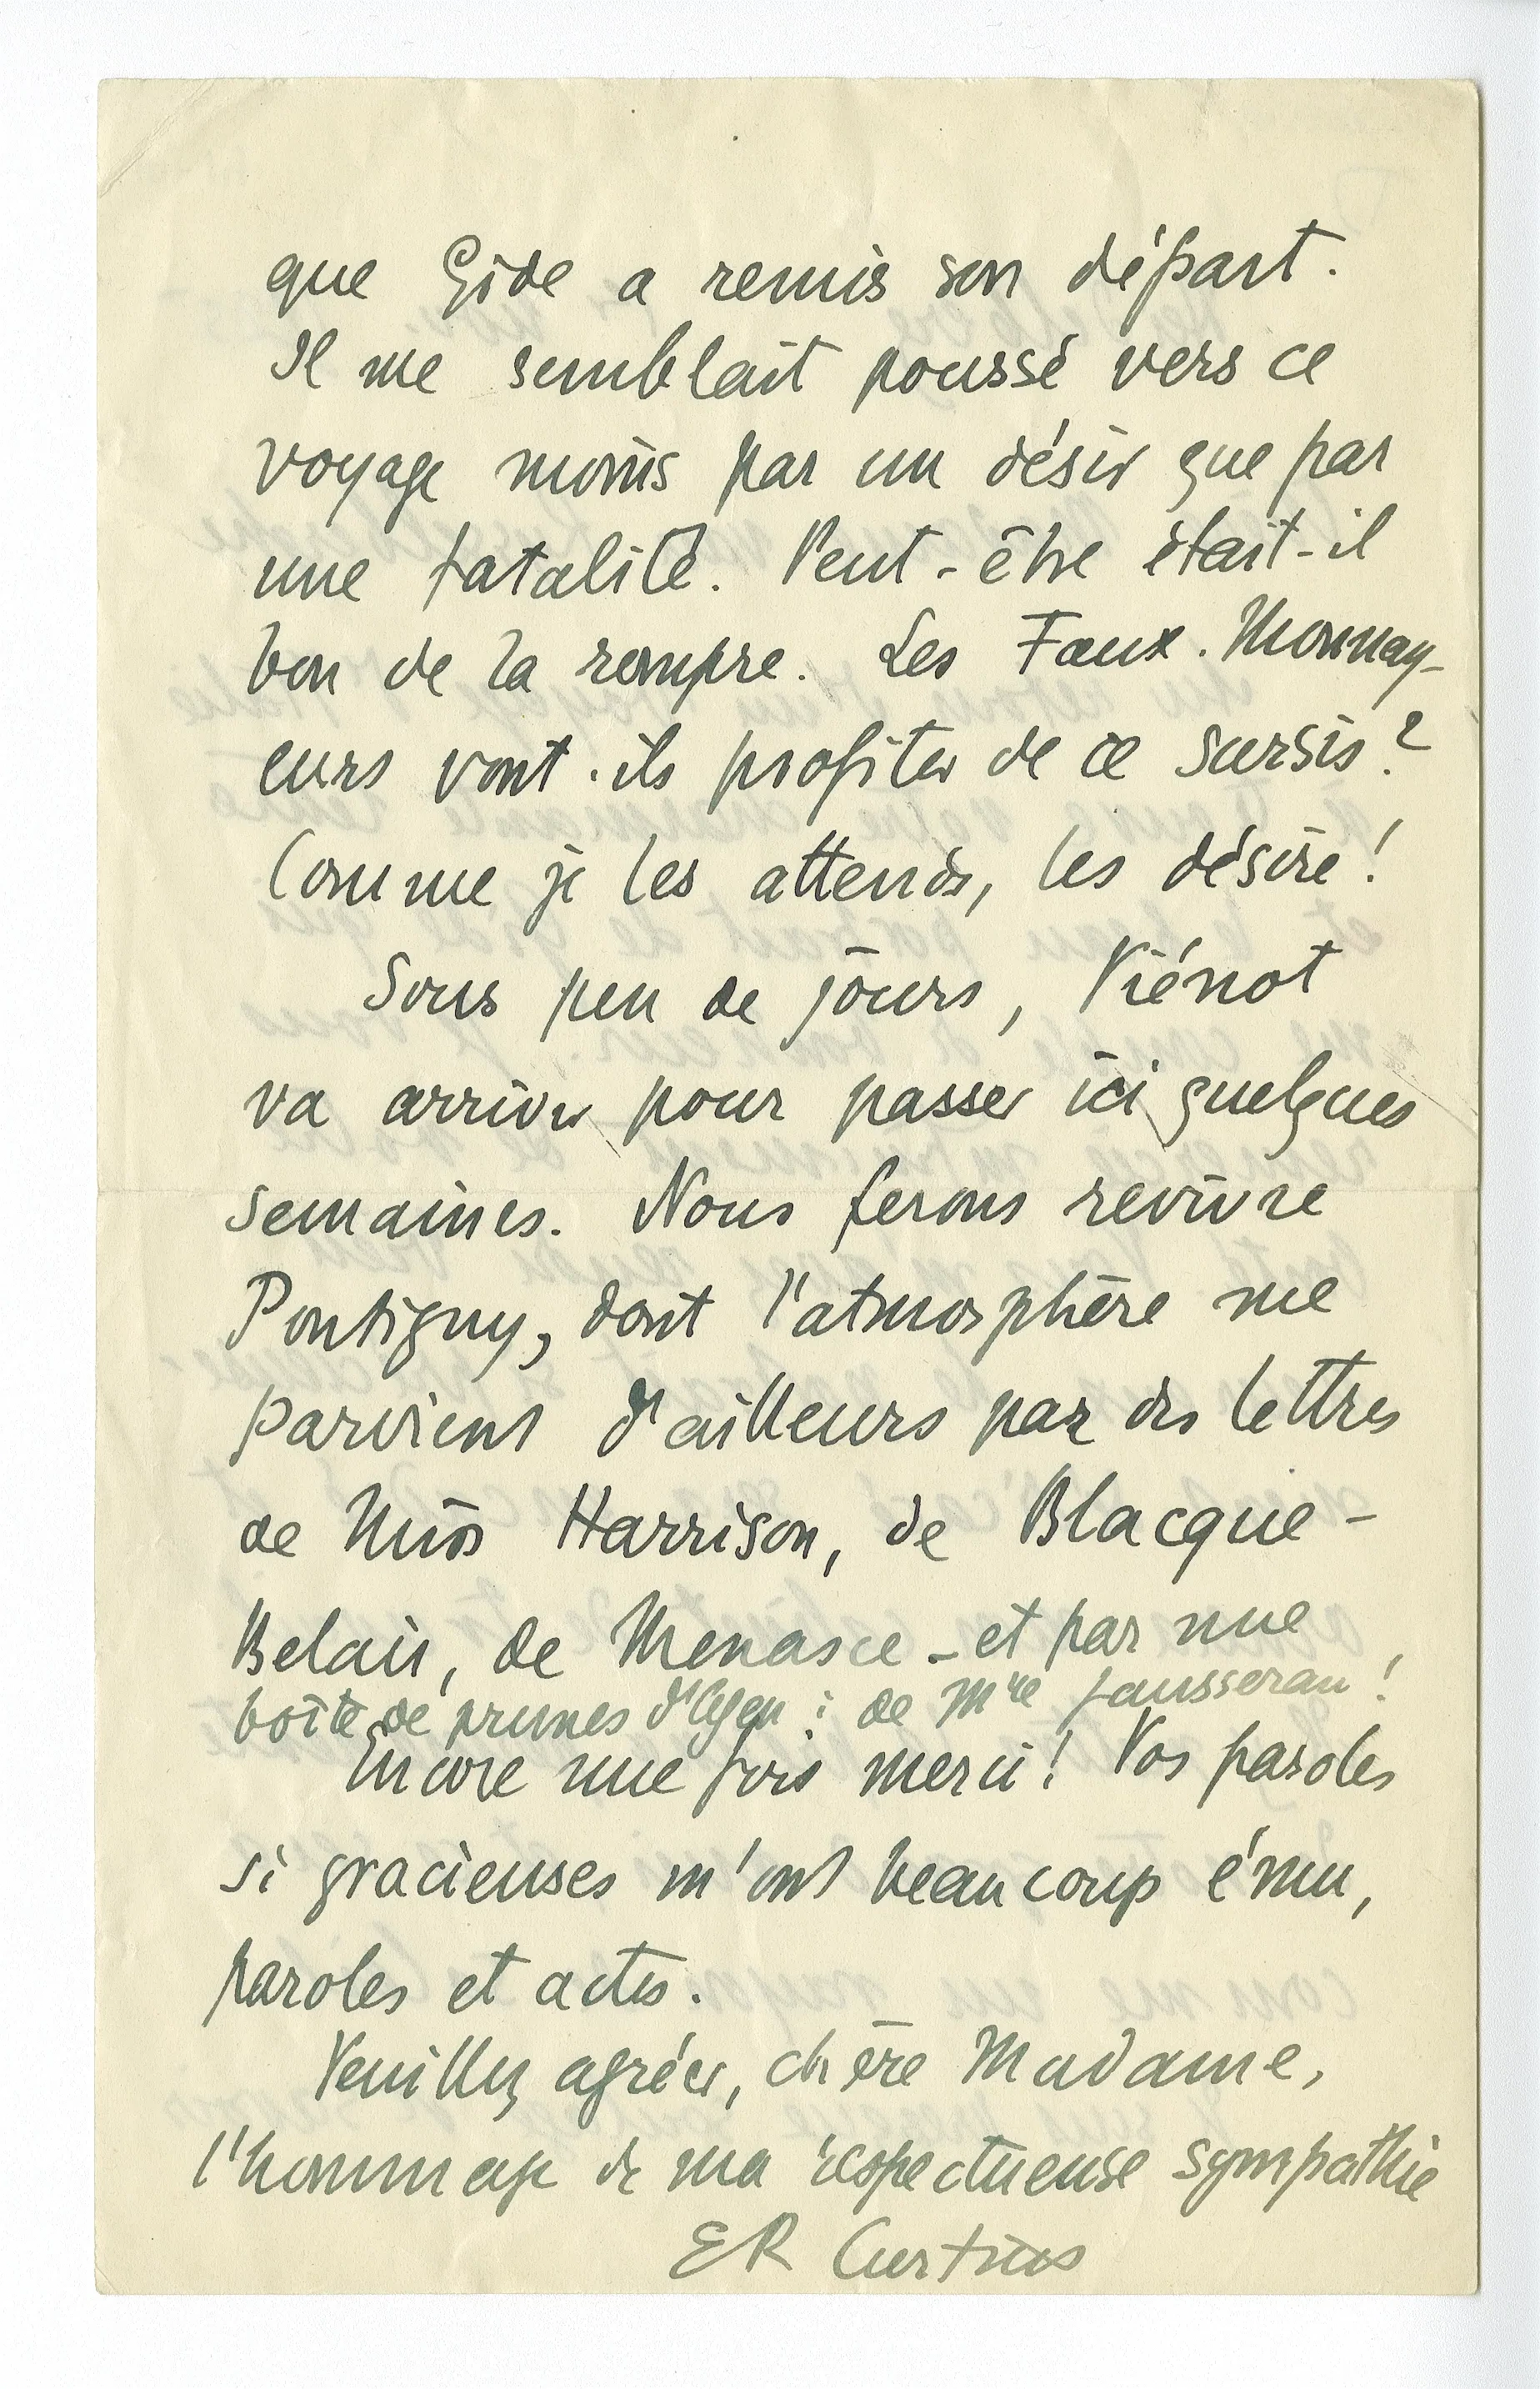 que Gide a remis son départ.
Il me semblait poussé vers ce
voyage moins par un désir que par
une fatalité. Peut-être était-il
bon de la rompre. Les Faux-Monnay-
eurs vont-ils profiter de ce sursis?
Comme je les attends, les désire!
Sous peu de jours, Viénot
va arriver pour passer ici quelques
semaines. Nous ferons revivre
Pontigny, dont l'atmosphère me
parvient d'ailleurs par des lettres
de Miss Harrison, de Blacque-
Belair, de Menasce - et par une
boîte de prunes d'Agen : de Mme Jausseran!
Encore une fois merci! Vos paroles
si gracieuses m'ont beaucoup ému,
paroles et actes.
Veuillez agréer, chère Madame,
l'hommage de ma respectueuse sympathie
ER Curtius